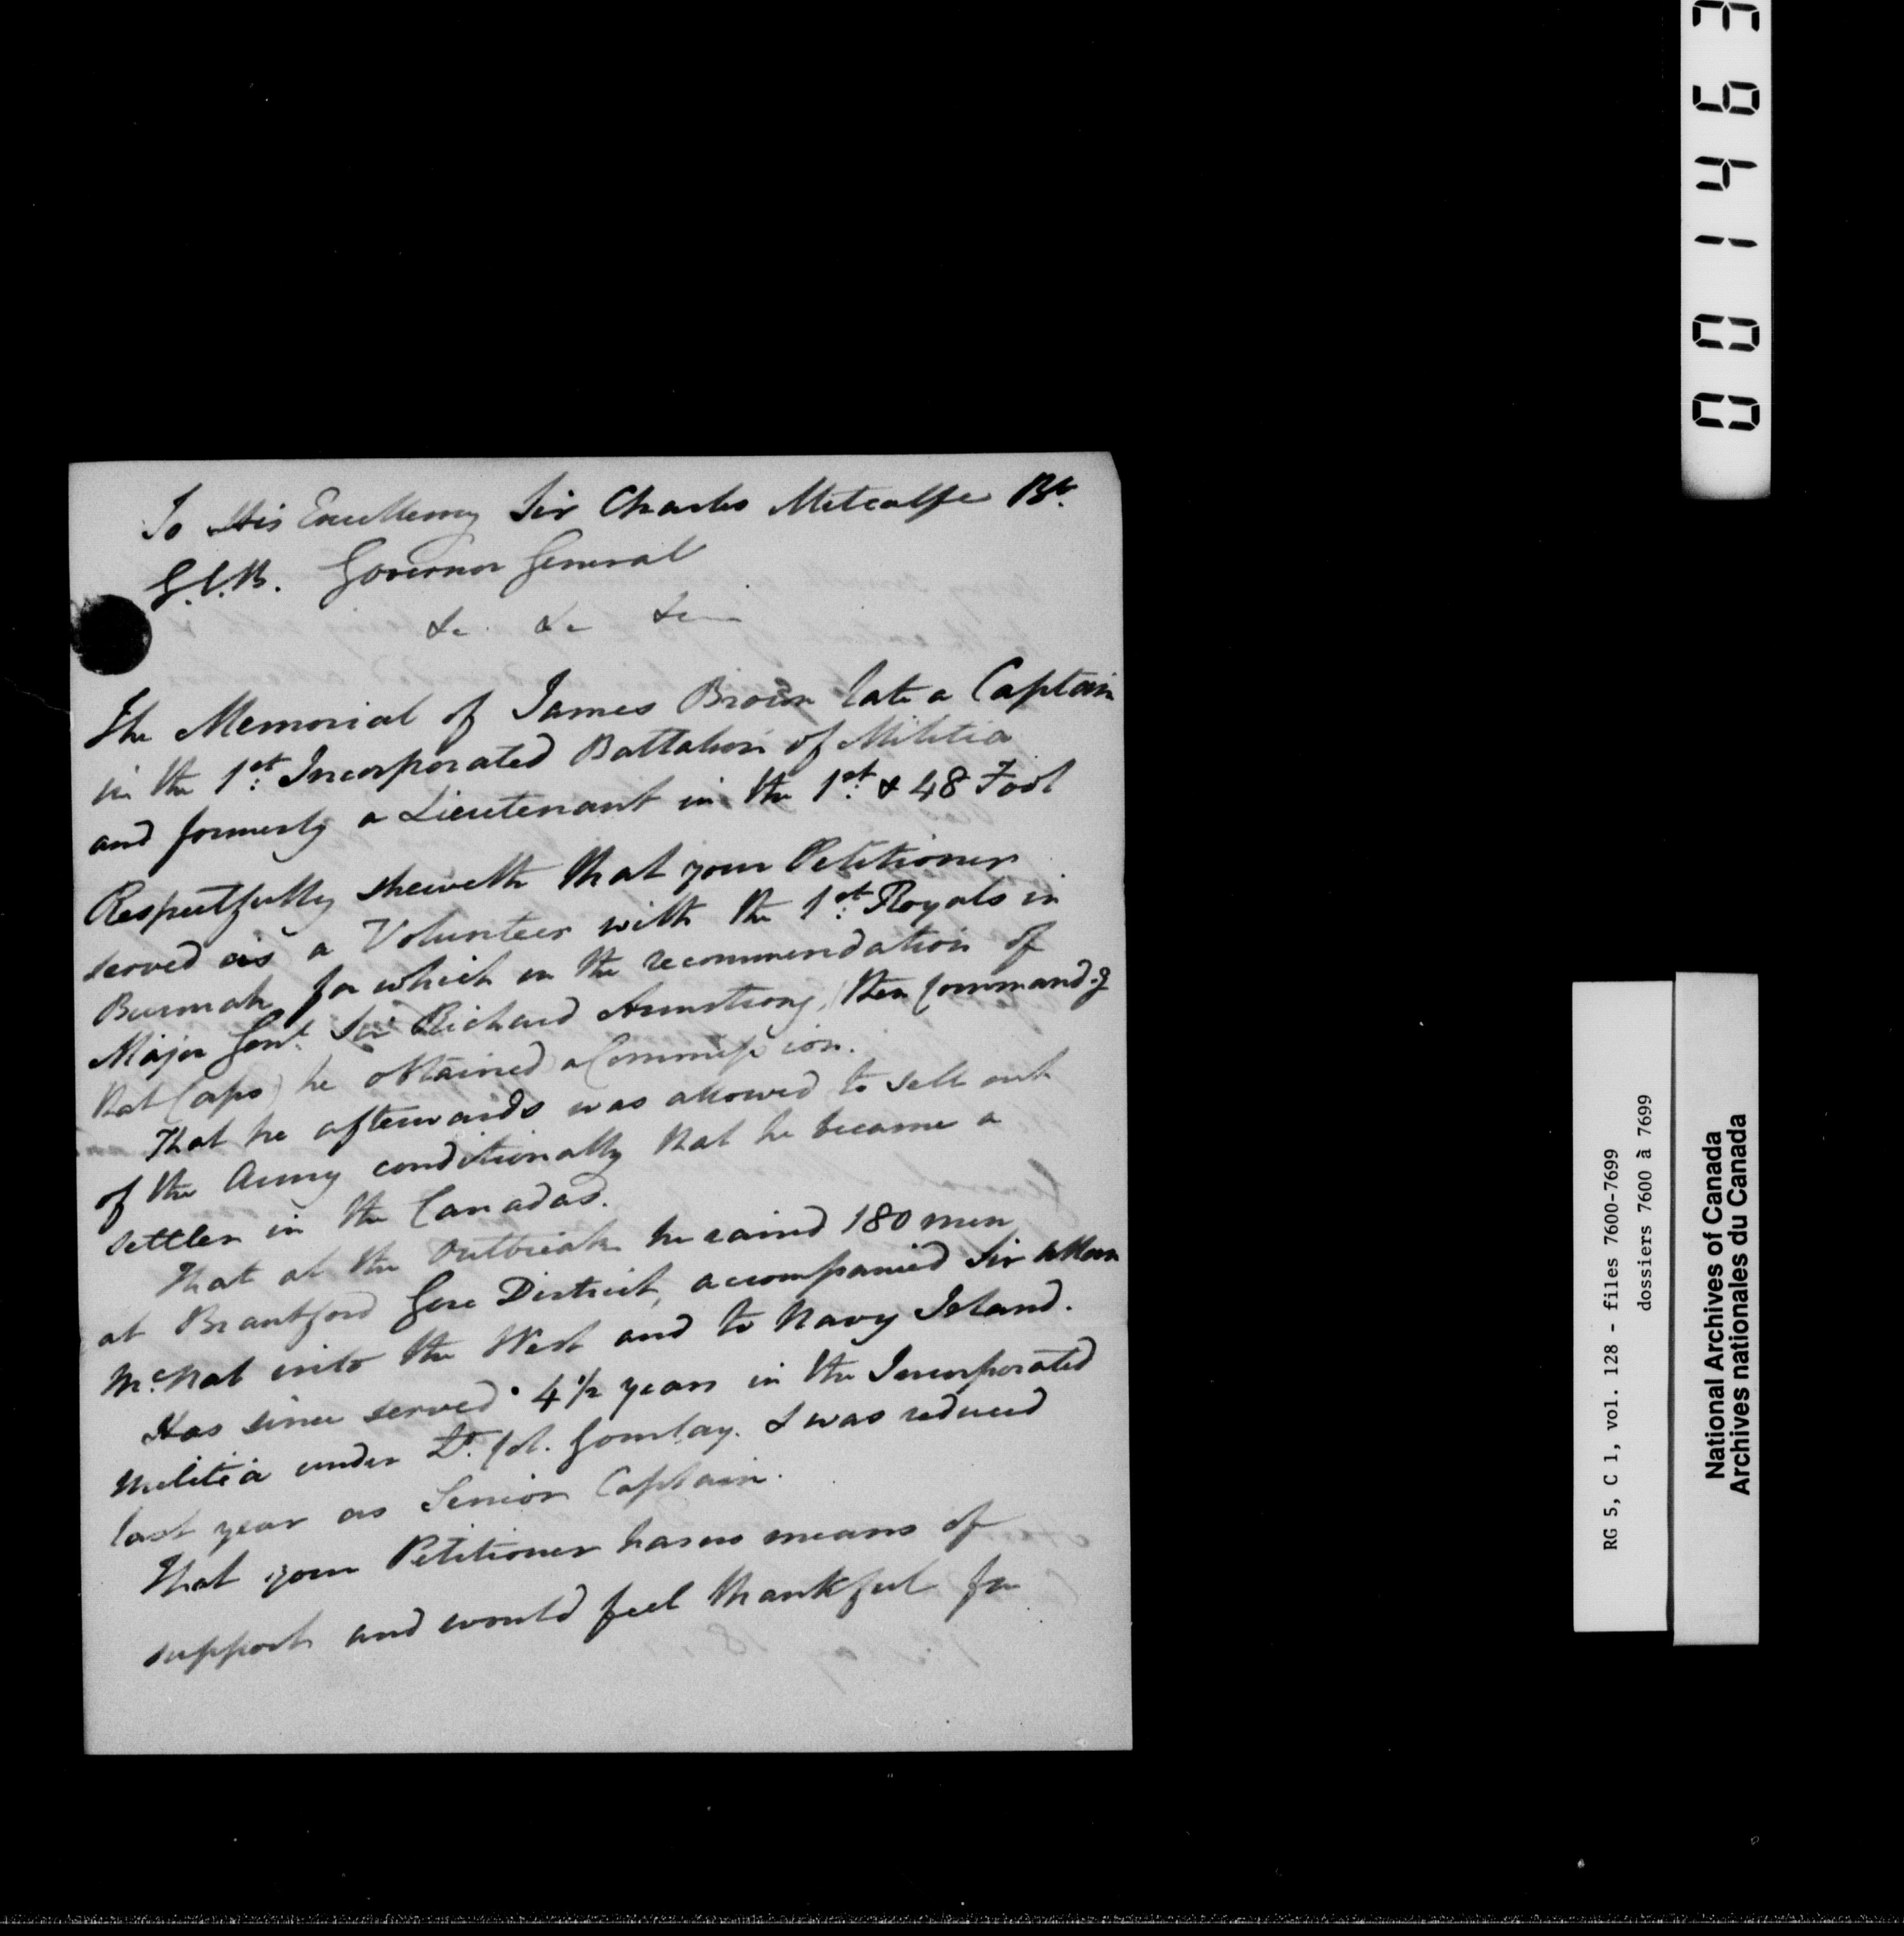 To His Excellency Sir Charles Metcalfe Bt.
G.C.B. Governor General
&c &c &c
The Memorial of James Brown late a Captain
in the 1st Incorporated Battalion of Militia
and formerly a Lieutenant in the 1st & 48 Foot
Respectfully sheweth that your Petitioner
served as a Volunteer with the 1st Royals in
Burmah for which on the recommendation of
Major Genl Sir Richard Armstrong, (then commandg
that Corps) he obtained a Commission.
That he afterwards was allowed to sell out
of the Army conditionally that he became a
settler in the Canadas.
That at the outbreak he raised 180 men
at Brantford Gore District, accompanied Sir Allan
McNab into the West and to Navy Island.
Has since served 4½ years in the Incorporated
Militia under Lt. Col. Gourlay. & was reduced
last year as Senior Captain.
That your Petitioner has no means of
support and would feel thankful for
001463
RG 5, C 1, vol. 128 - files 7600-7699
dossiers 7600 à 7699
National Archives of Canada
Archives nationales du Canada